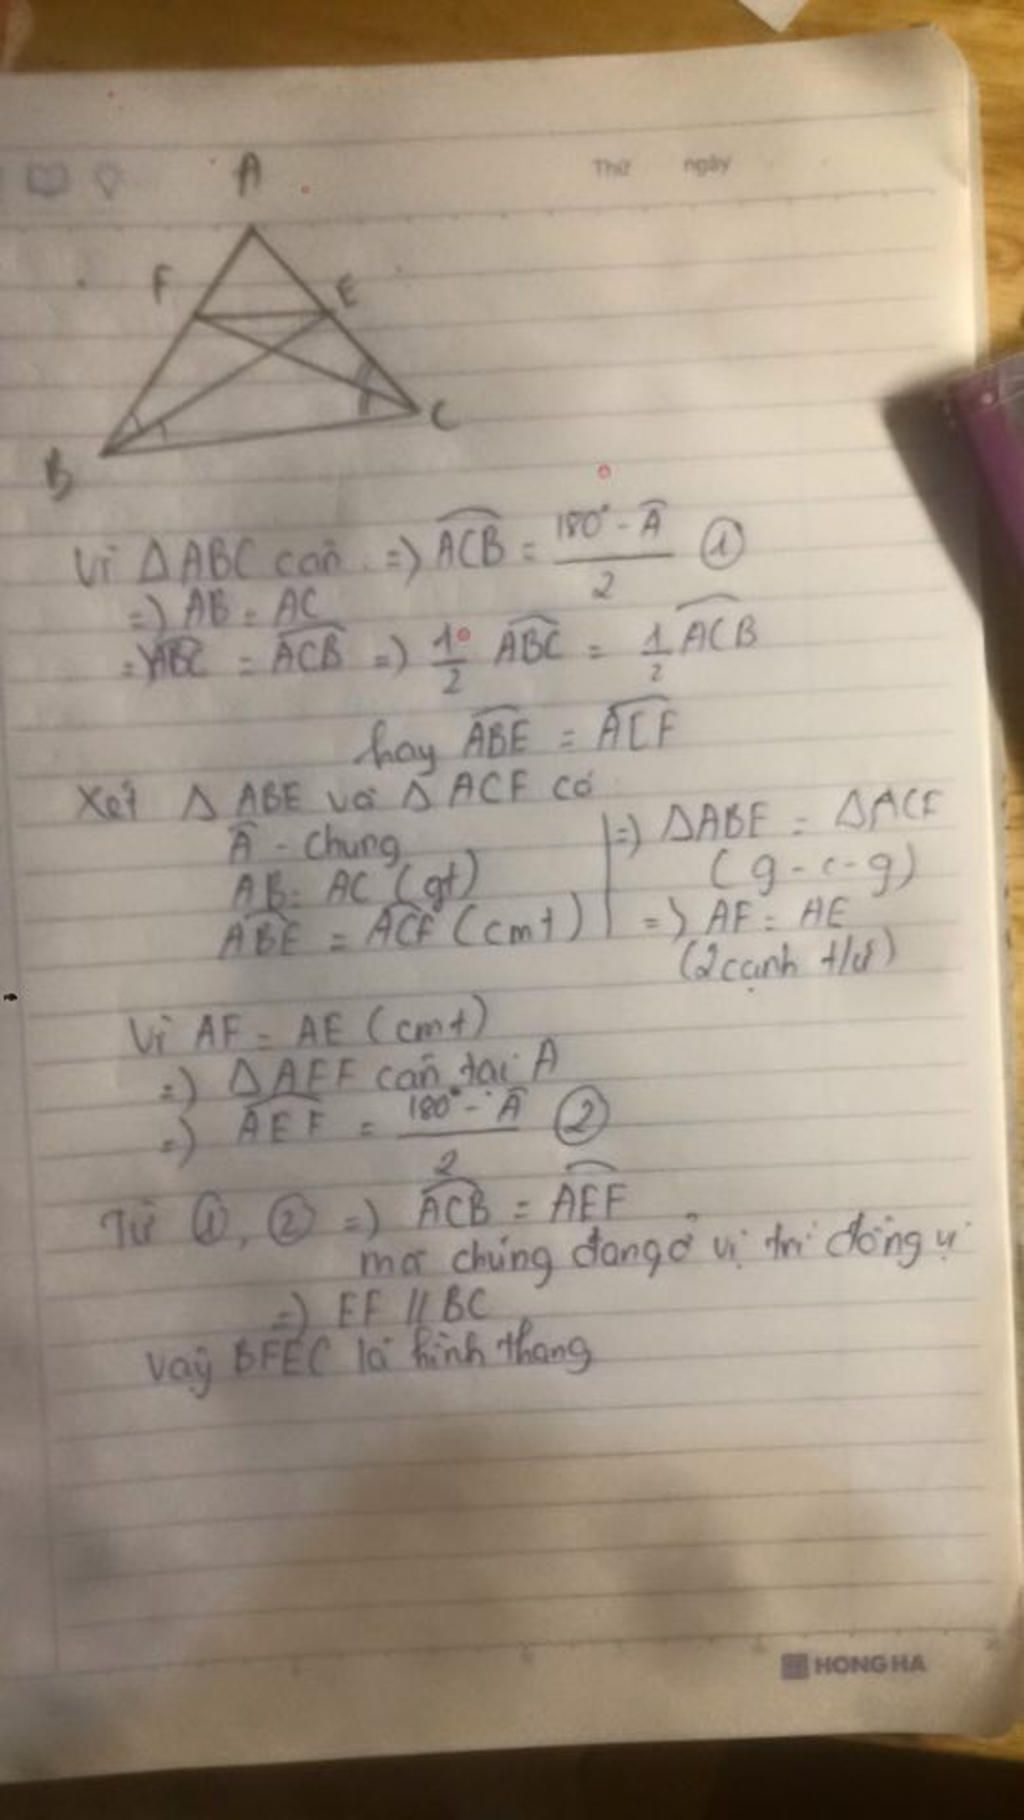 Thứ ngày
A
F E
C
B
Vì ΔABC cân => ACB = (180° - A)/2 ①
=> AB = AC
=> ABC = ACB => 1/2 ABC = 1/2 ACB
hay ABE = ACF
Xét Δ ABE và Δ ACF có
A - chung
AB = AC (gt)
ABE = ACF (cmt)
=> ΔABE = ΔACF
(g-c-g)
=> AF = AE
(2 cạnh t/ư)
Vì AF = AE (cmt)
=> ΔAEF cân tại A
=> AEF = (180° - A)/2 ②
Từ ①, ② => ACB = AEF
mà chúng đang ở vị trí đồng vị
=> EF // BC
Vậy BFEC là hình thang
HONG HA